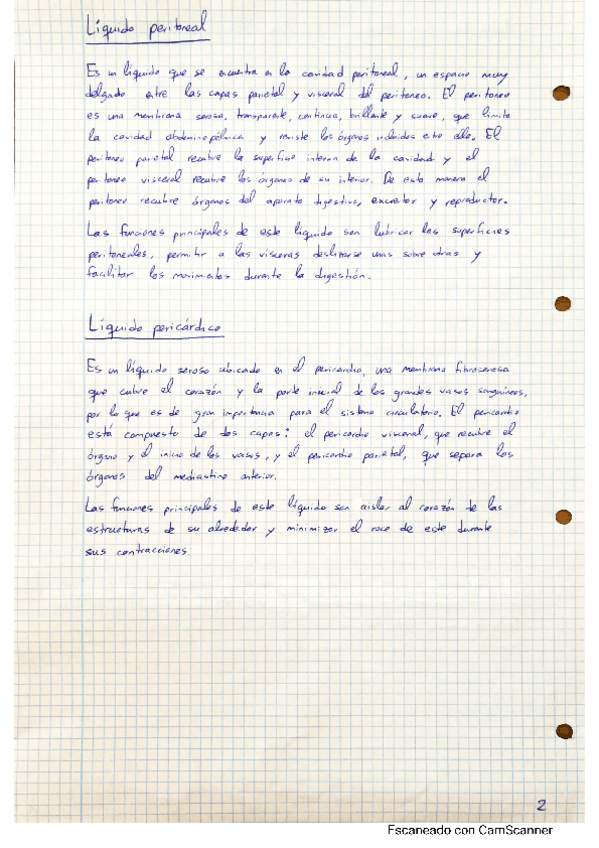 Líquido peritoneal
Es un líquido que se encuentra en la cavidad peritoneal, un espacio muy
delgado entre las capas parietal y visceral del peritoneo. El peritoneo
es una membrana serosa, transparente, continua, brillante y suave, que limita
la cavidad abdominopélvica y reviste los órganos incluidos en ella. El
peritoneo parietal recubre la superficie interna de la cavidad y el
peritoneo visceral recubre los órganos de su interior. De esta manera el
peritoneo recubre órganos del aparato digestivo, excretor y reproductor.
Las funciones principales de este líquido son lubricar las superficies
peritoneales, permitir a las vísceras deslizarse unas sobre otras y
facilitar los movimientos durante la digestión.
Líquido pericárdico
Es un líquido seroso ubicado en el pericardio, una membrana fibroserosa
que cubre el corazón y la parte inicial de los grandes vasos sanguíneos,
por lo que es de gran importancia para el sistema circulatorio. El pericardio
está compuesto de dos capas: el pericardio visceral, que recubre el
órgano y el inicio de los vasos, y el pericardio parietal, que separa los
órganos del mediastino anterior.
Las funciones principales de este líquido son aislar al corazón de las
estructuras de su alrededor y minimizar el roce de este durante
sus contracciones
2
Escaneado con CamScanner